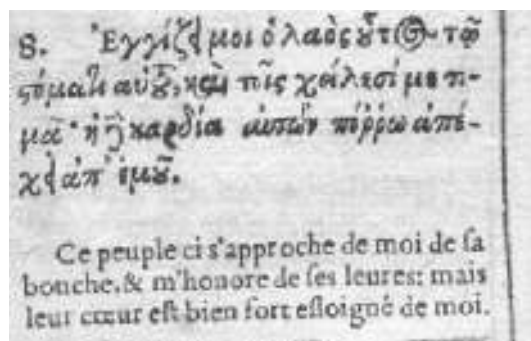 8. Ἐγγίζει μοι ὁ λαὸς οὗτος τῷ
στόματι αὐτοῦ, καὶ τοῖς χείλεσί με τι-
μᾷ· ἡ δὲ καρδία αὐτῶν πόῤῥω ἀπέ-
χει ἀπ' ἐμοῦ.
Ce peuple ci s'approche de moi de ſa
bouche, & m'honore de ſes leures: mais
leur cœur eſt bien fort eſloigné de moi.